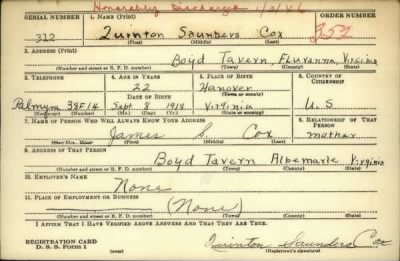 Honorably Discharged 1/3/46
SERIAL NUMBER 1. NAME (Print) ORDER NUMBER
312 Quinton Saunders Cox 252
(First) (Middle) (Last)
2. ADDRESS (Print)
Boyd Tavern, Fluvanna, Virginia
(Number and street or R. F. D. number) (Town) (County) (State)
3. TELEPHONE 4. AGE IN YEARS 5. PLACE OF BIRTH 6. COUNTRY OF CITIZENSHIP
22 Hanover
DATE OF BIRTH (Town)
Palmyra 38F14 Sept 8 1918 Virginia U. S
(Exchange) (Number) (Mo.) (Day) (Yr.) (State or country)
7. NAME OF PERSON WHO WILL ALWAYS KNOW YOUR ADDRESS 8. RELATIONSHIP OF THAT PERSON
James S. Cox mother
(Mr., Mrs., Miss) (First) (Middle) (Last)
9. ADDRESS OF THAT PERSON
Boyd Tavern Albemarle Virginia
(Number and street or R. F. D. number) (Town) (County) (State)
10. EMPLOYER'S NAME
None
11. PLACE OF EMPLOYMENT OR BUSINESS
(None)
(Number and street or R. F. D. number) (Town) (County) (State)
I AFFIRM THAT I HAVE VERIFIED ABOVE ANSWERS AND THAT THEY ARE TRUE.
REGISTRATION CARD
D. S. S. Form 1 Quinton Saunders Cox
(Registrant's signature)